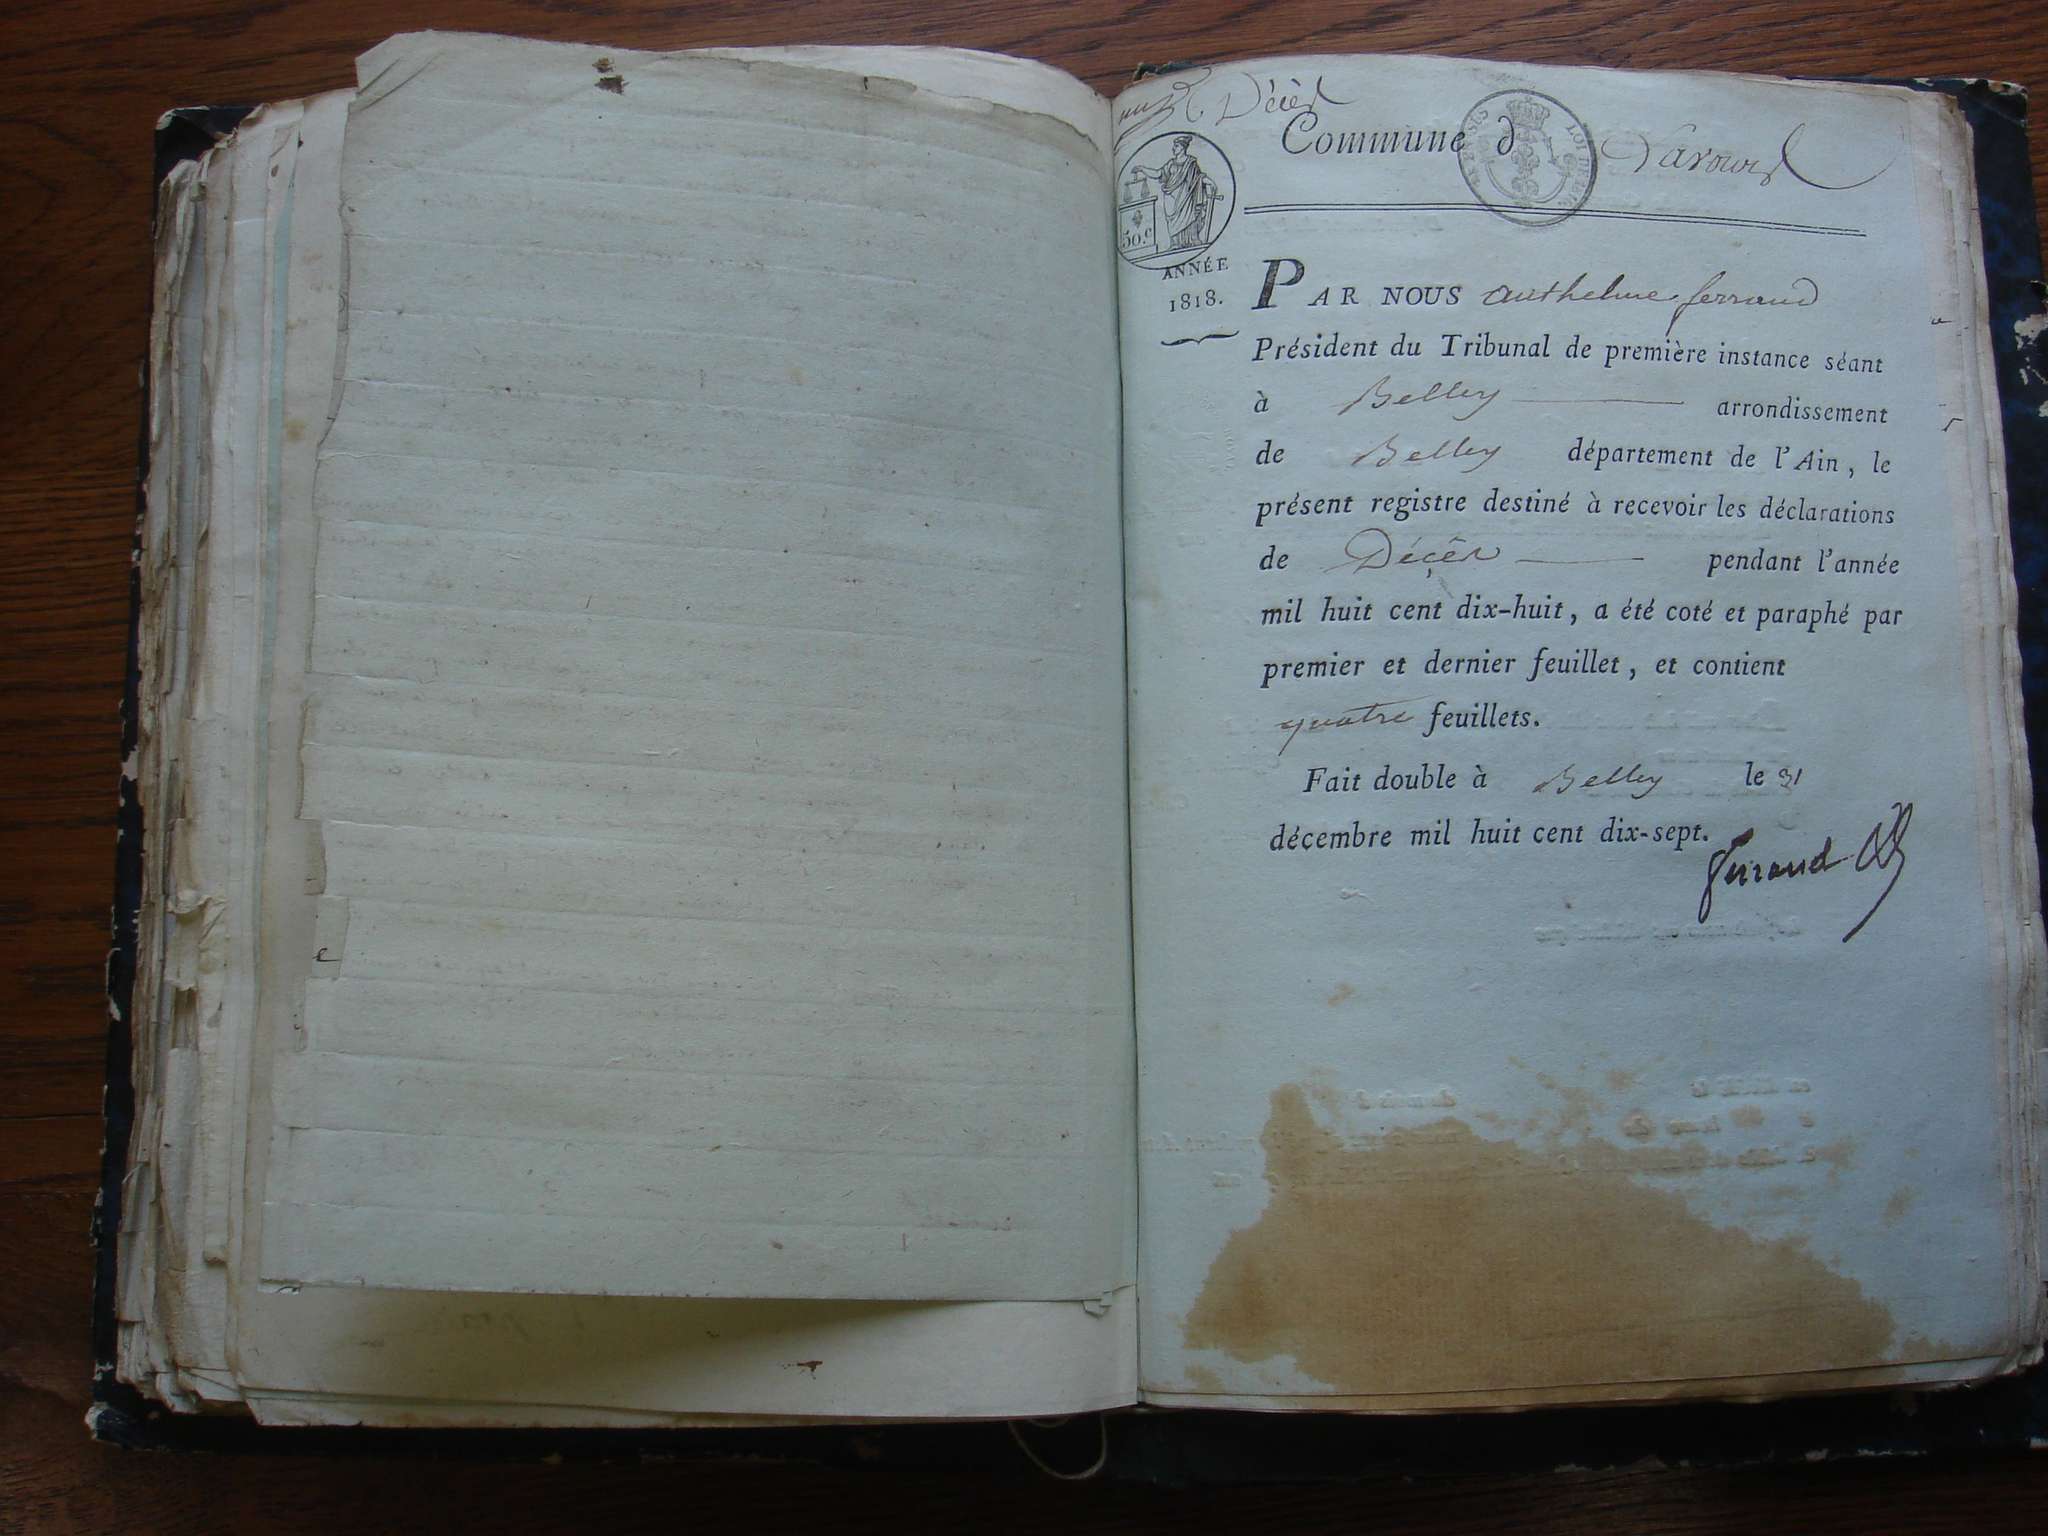 Décès
Commune d Parves
50.c
ANNÉE
1818.
PAR NOUS Anthelme ferrand
Président du Tribunal de première instance séant
à Belley arrondissement
de Belley département de l'Ain, le
présent registre destiné à recevoir les déclarations
de Décès pendant l'année
mil huit cent dix-huit, a été coté et paraphé par
premier et dernier feuillet, et contient
quatre feuillets.
Fait double à Belley le 31
décembre mil huit cent dix-sept.
ferrand